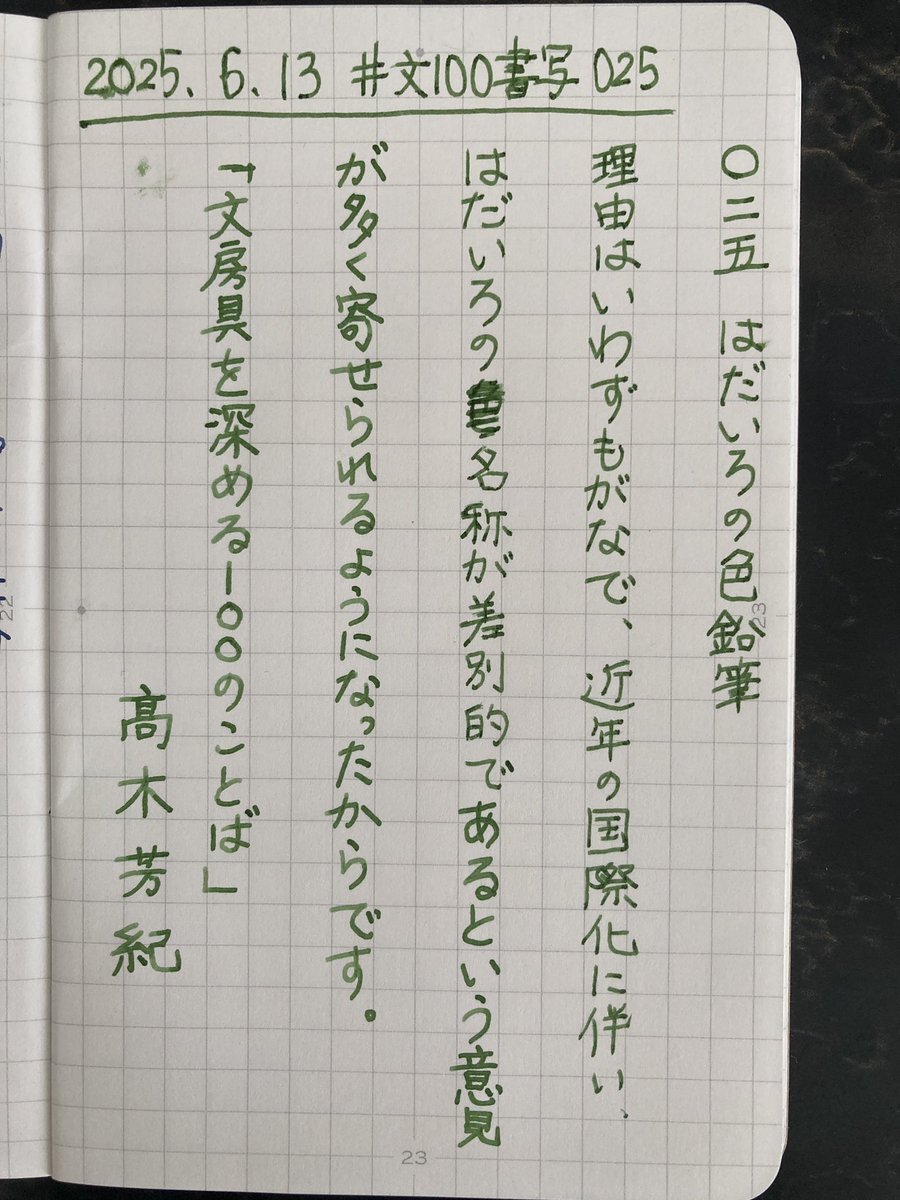 2025.6.13 #文100書写025
〇二五 はだいろの色鉛筆
理由はいわずもがなで、近年の国際化に伴い、
はだいろの名称が差別的であるという意見
が多く寄せられるようになったからです。
「文房具を深める一〇〇のことば」
高木芳紀
22
23
23